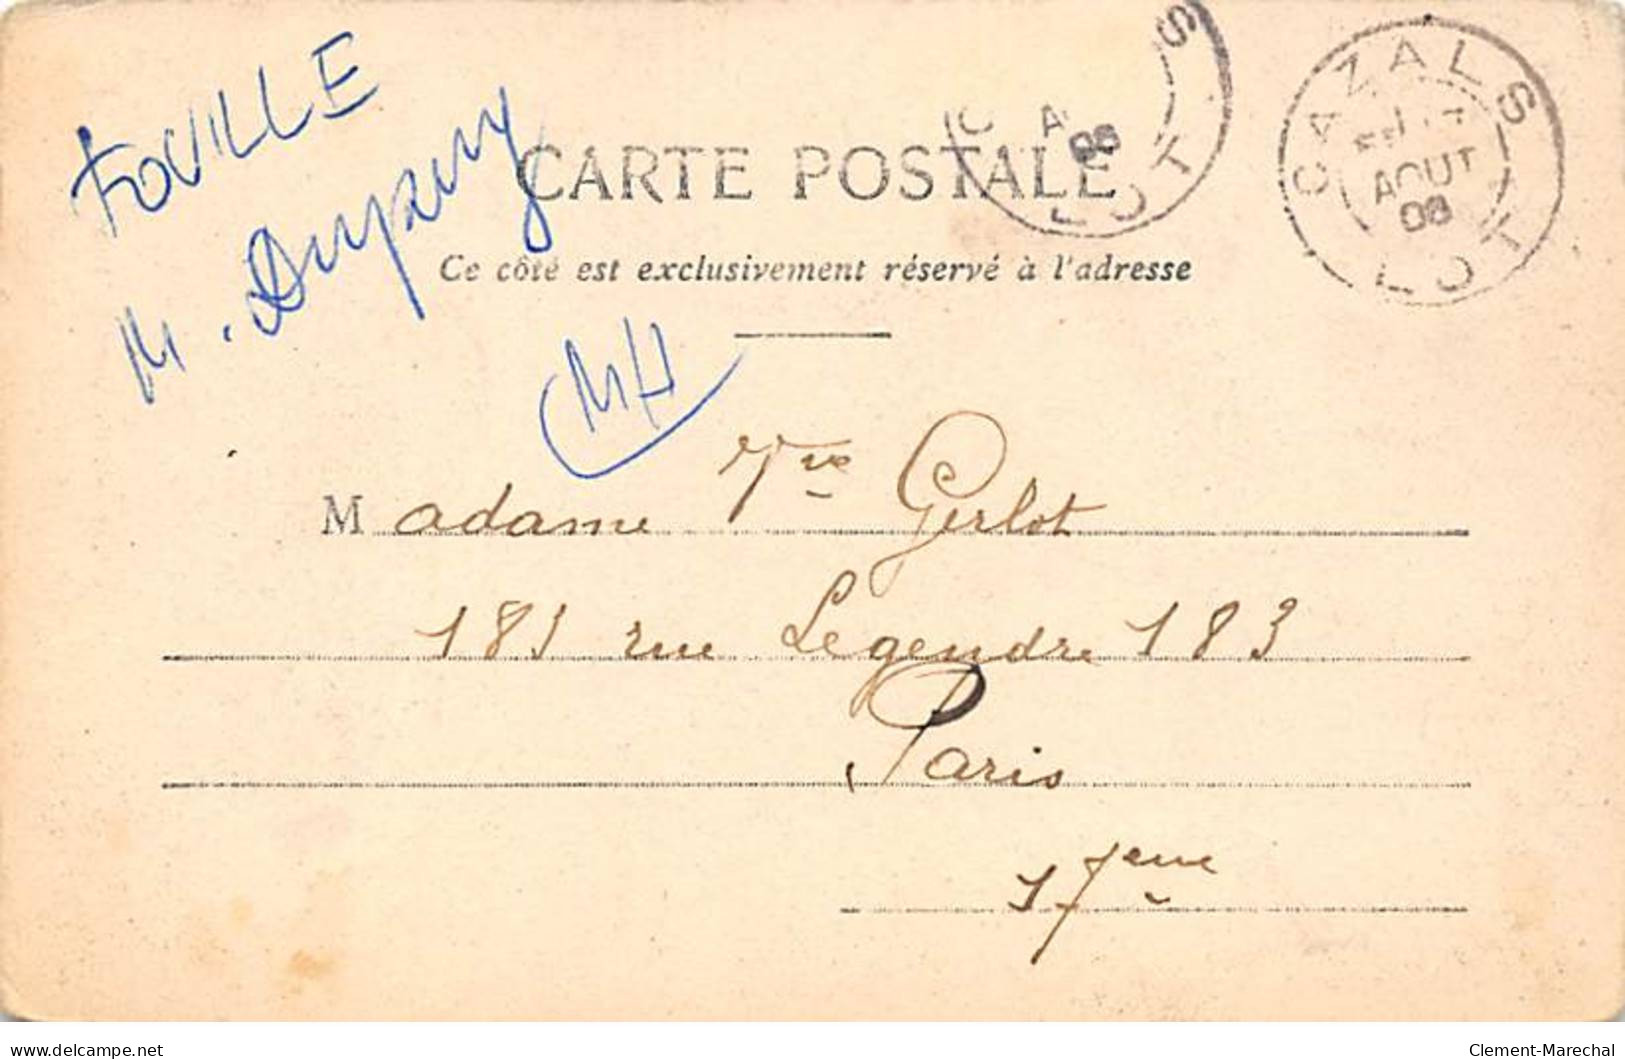 FOUILLE
M. Dupauy
MH
CARTE POSTALE
Ce côté est exclusivement réservé à l'adresse
CAZALS
AOUT
08
LOT
S
A
08
LOT
Madame Vve Gerlot
183 rue Legendre 183
Paris
17eme
delcampe.net
Clement-Marechal